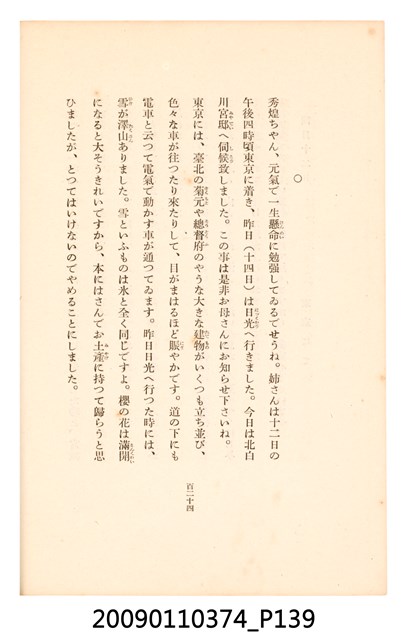 ○
秀煌ちやん、元氣で一生懸命に勉强してゐるでせうね。姉さんは十二日の
午後四時頃東京に着き、昨日(十四日)は日光へ行きました。今日は北白
川宮邸へ伺候致しました。この事は是非お母さんにお知らせ下さいね。
東京には、臺北の菊元や總督府のやうな大きな建物がいくつも立ち並び、
色々な車が往つたり來たりして、目がまはるほど賑やかです。道の下にも
電車と云つて電氣で動かす車が通つてゐます。昨日日光へ行つた時には、
雪が澤山ありました。雪といふものは氷と全く同じですよ。櫻の花は滿開
になると大そうきれいですから、本にはさんでお土產に持つて歸らうと思
ひましたが、とつてはいけないのでやめることにしました。
百二十四
20090110374_P139